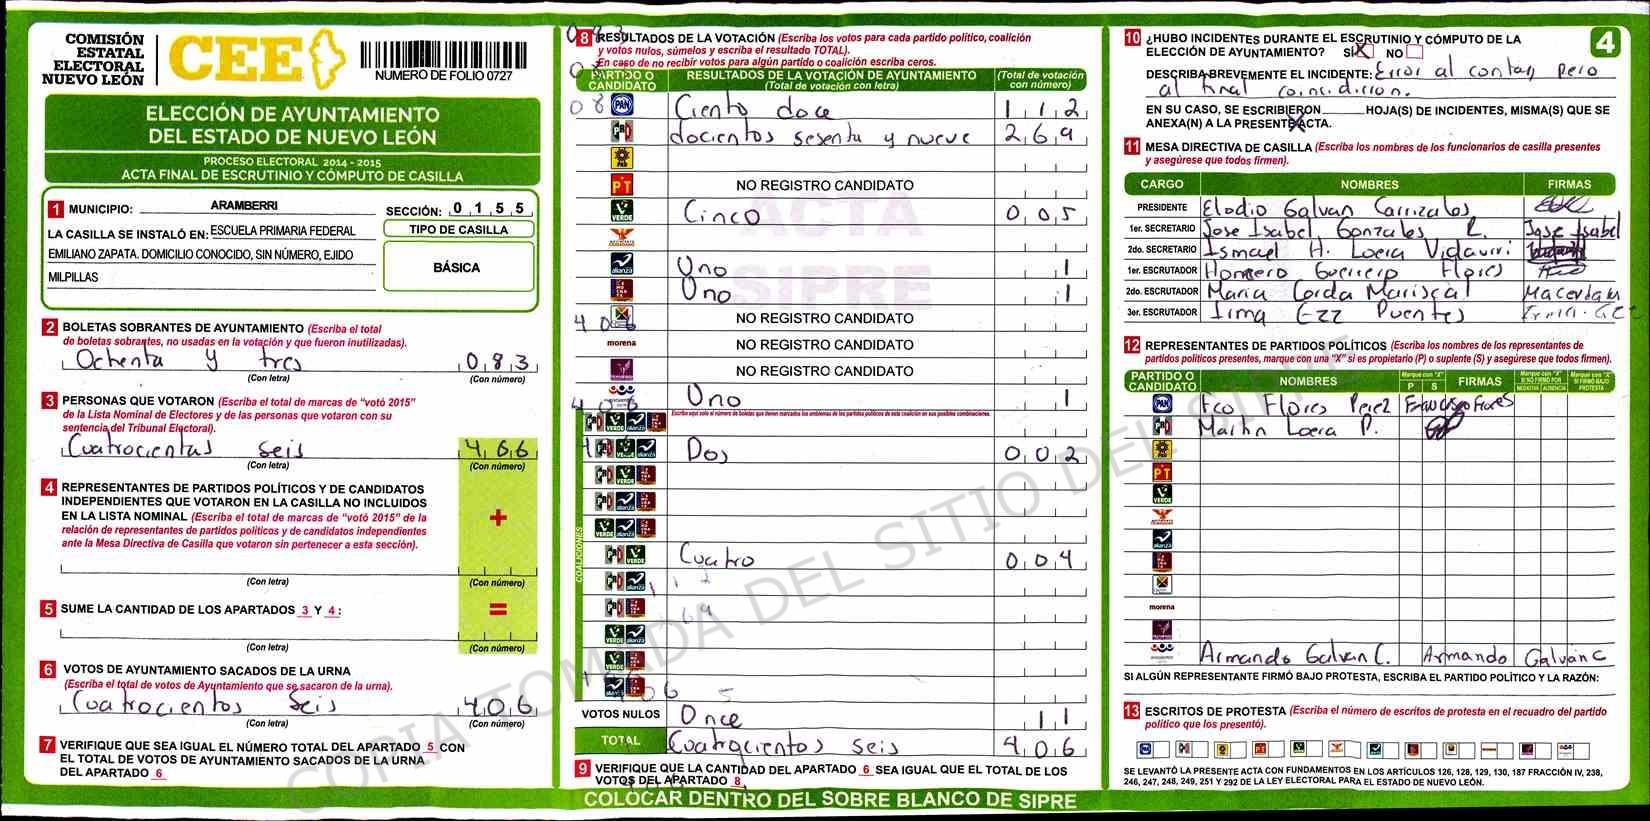 COMISIÓN
ESTATAL
ELECTORAL
NUEVO LEÓN
CEE
NUMERO DE FOLIO 0727
ELECCIÓN DE AYUNTAMIENTO
DEL ESTADO DE NUEVO LEÓN
PROCESO ELECTORAL 2014 - 2015
ACTA FINAL DE ESCRUTINIO Y CÓMPUTO DE CASILLA
1 MUNICIPIO: ARAMBERRI SECCIÓN: 0 1 5 5
LA CASILLA SE INSTALÓ EN: ESCUELA PRIMARIA FEDERAL
EMILIANO ZAPATA. DOMICILIO CONOCIDO, SIN NÚMERO, EJIDO
MILPILLAS
TIPO DE CASILLA
BÁSICA
2 BOLETAS SOBRANTES DE AYUNTAMIENTO (Escriba el total
de boletas sobrantes, no usadas en la votación y que fueron inutilizadas).
Ochenta y tres 0 8 3
(Con letra) (Con número)
3 PERSONAS QUE VOTARON (Escriba el total de marcas de "votó 2015"
de la Lista Nominal de Electores y de las personas que votaron con su
sentencia del Tribunal Electoral).
Cuatrocientas seis 4 0 6
(Con letra) (Con número)
4 REPRESENTANTES DE PARTIDOS POLÍTICOS Y DE CANDIDATOS
INDEPENDIENTES QUE VOTARON EN LA CASILLA NO INCLUIDOS
EN LA LISTA NOMINAL (Escriba el total de marcas de "votó 2015" de la
relación de representantes de partidos políticos y de candidatos independientes
ante la Mesa Directiva de Casilla que votaron sin pertenecer a esta sección).
+
(Con letra) (Con número)
5 SUME LA CANTIDAD DE LOS APARTADOS 3 Y 4: =
(Con letra) (Con número)
6 VOTOS DE AYUNTAMIENTO SACADOS DE LA URNA
(Escriba el total de votos de Ayuntamiento que se sacaron de la urna).
Cuatrocientos seis 4 0 6
(Con letra) (Con número)
7 VERIFIQUE QUE SEA IGUAL EL NÚMERO TOTAL DEL APARTADO 5 CON
EL TOTAL DE VOTOS DE AYUNTAMIENTO SACADOS DE LA URNA
DEL APARTADO 6
8 RESULTADOS DE LA VOTACIÓN (Escriba los votos para cada partido político, coalición
y votos nulos, súmelos y escriba el resultado TOTAL).
En caso de no recibir votos para algún partido o coalición escriba ceros.
PARTIDO O CANDIDATO RESULTADOS DE LA VOTACIÓN DE AYUNTAMIENTO (Total de votación con letra) (Total de votación con número)
PAN Ciento doce 1 1 2
PRD docientos sesenta y nueve 2 6 9
PT NO REGISTRO CANDIDATO
VERDE Cinco 0 0 5
alianza Uno 1
Uno 1
NO REGISTRO CANDIDATO
morena NO REGISTRO CANDIDATO
NO REGISTRO CANDIDATO
Uno 1
Escriba aquí solo el número de boletas que tienen marcados los emblemas de los partidos políticos de esta coalición en sus posibles combinaciones.
COALICIONES
Dos 0 0 2
Cuatro 0 0 4
VOTOS NULOS Once 1 1
TOTAL Cuatrocientos seis 4 0 6
9 VERIFIQUE QUE LA CANTIDAD DEL APARTADO 6 SEA IGUAL QUE EL TOTAL DE LOS
VOTOS DEL APARTADO 8
COLOCAR DENTRO DEL SOBRE BLANCO DE SIPRE
ACTA
SIPRE
COPIA TOMADA DEL SITIO DEL SIPRE
4
10 ¿HUBO INCIDENTES DURANTE EL ESCRUTINIO Y CÓMPUTO DE LA
ELECCIÓN DE AYUNTAMIENTO? SI X NO
DESCRIBA BREVEMENTE EL INCIDENTE: Error al contar pero
al final coincidieron.
EN SU CASO, SE ESCRIBIERON HOJA(S) DE INCIDENTES, MISMA(S) QUE SE
ANEXA(N) A LA PRESENTE ACTA.
11 MESA DIRECTIVA DE CASILLA (Escriba los nombres de los funcionarios de casilla presentes
y asegúrese que todos firmen).
CARGO NOMBRES FIRMAS
PRESIDENTE Elodio Galvan Carrizales
1er. SECRETARIO Jose Isabel Gonzales R. Jose Isabel
2do. SECRETARIO Ismael H. Loera Vidaurri
1er. ESCRUTADOR Homero Guerrero Flores
2do. ESCRUTADOR Maria Cerda Mariscal
3er. ESCRUTADOR Irma Ezz Puentes
12 REPRESENTANTES DE PARTIDOS POLÍTICOS (Escriba los nombres de los representantes de
partidos políticos presentes, marque con una "X" si es propietario (P) o suplente (S) y asegúrese que todos firmen).
PARTIDO O CANDIDATO NOMBRES Marque con "X" P S FIRMAS Marque con "X" SI NO FIRMÓ POR NEGATIVA AUSENCIA Marque con "X" SI FIRMÓ BAJO PROTESTA
PAN Fco Flores Perez Francisco Flores
Martin Loera P.
PT
VERDE
alianza
morena
Armando Galvan C. Armando Galvan C
SI ALGÚN REPRESENTANTE FIRMÓ BAJO PROTESTA, ESCRIBA EL PARTIDO POLÍTICO Y LA RAZÓN:
13 ESCRITOS DE PROTESTA (Escriba el número de escritos de protesta en el recuadro del partido
político que los presentó).
SE LEVANTÓ LA PRESENTE ACTA CON FUNDAMENTOS EN LOS ARTÍCULOS 126, 128, 129, 130, 187 FRACCIÓN IV, 238,
246, 247, 248, 249, 251 Y 292 DE LA LEY ELECTORAL PARA EL ESTADO DE NUEVO LEÓN.